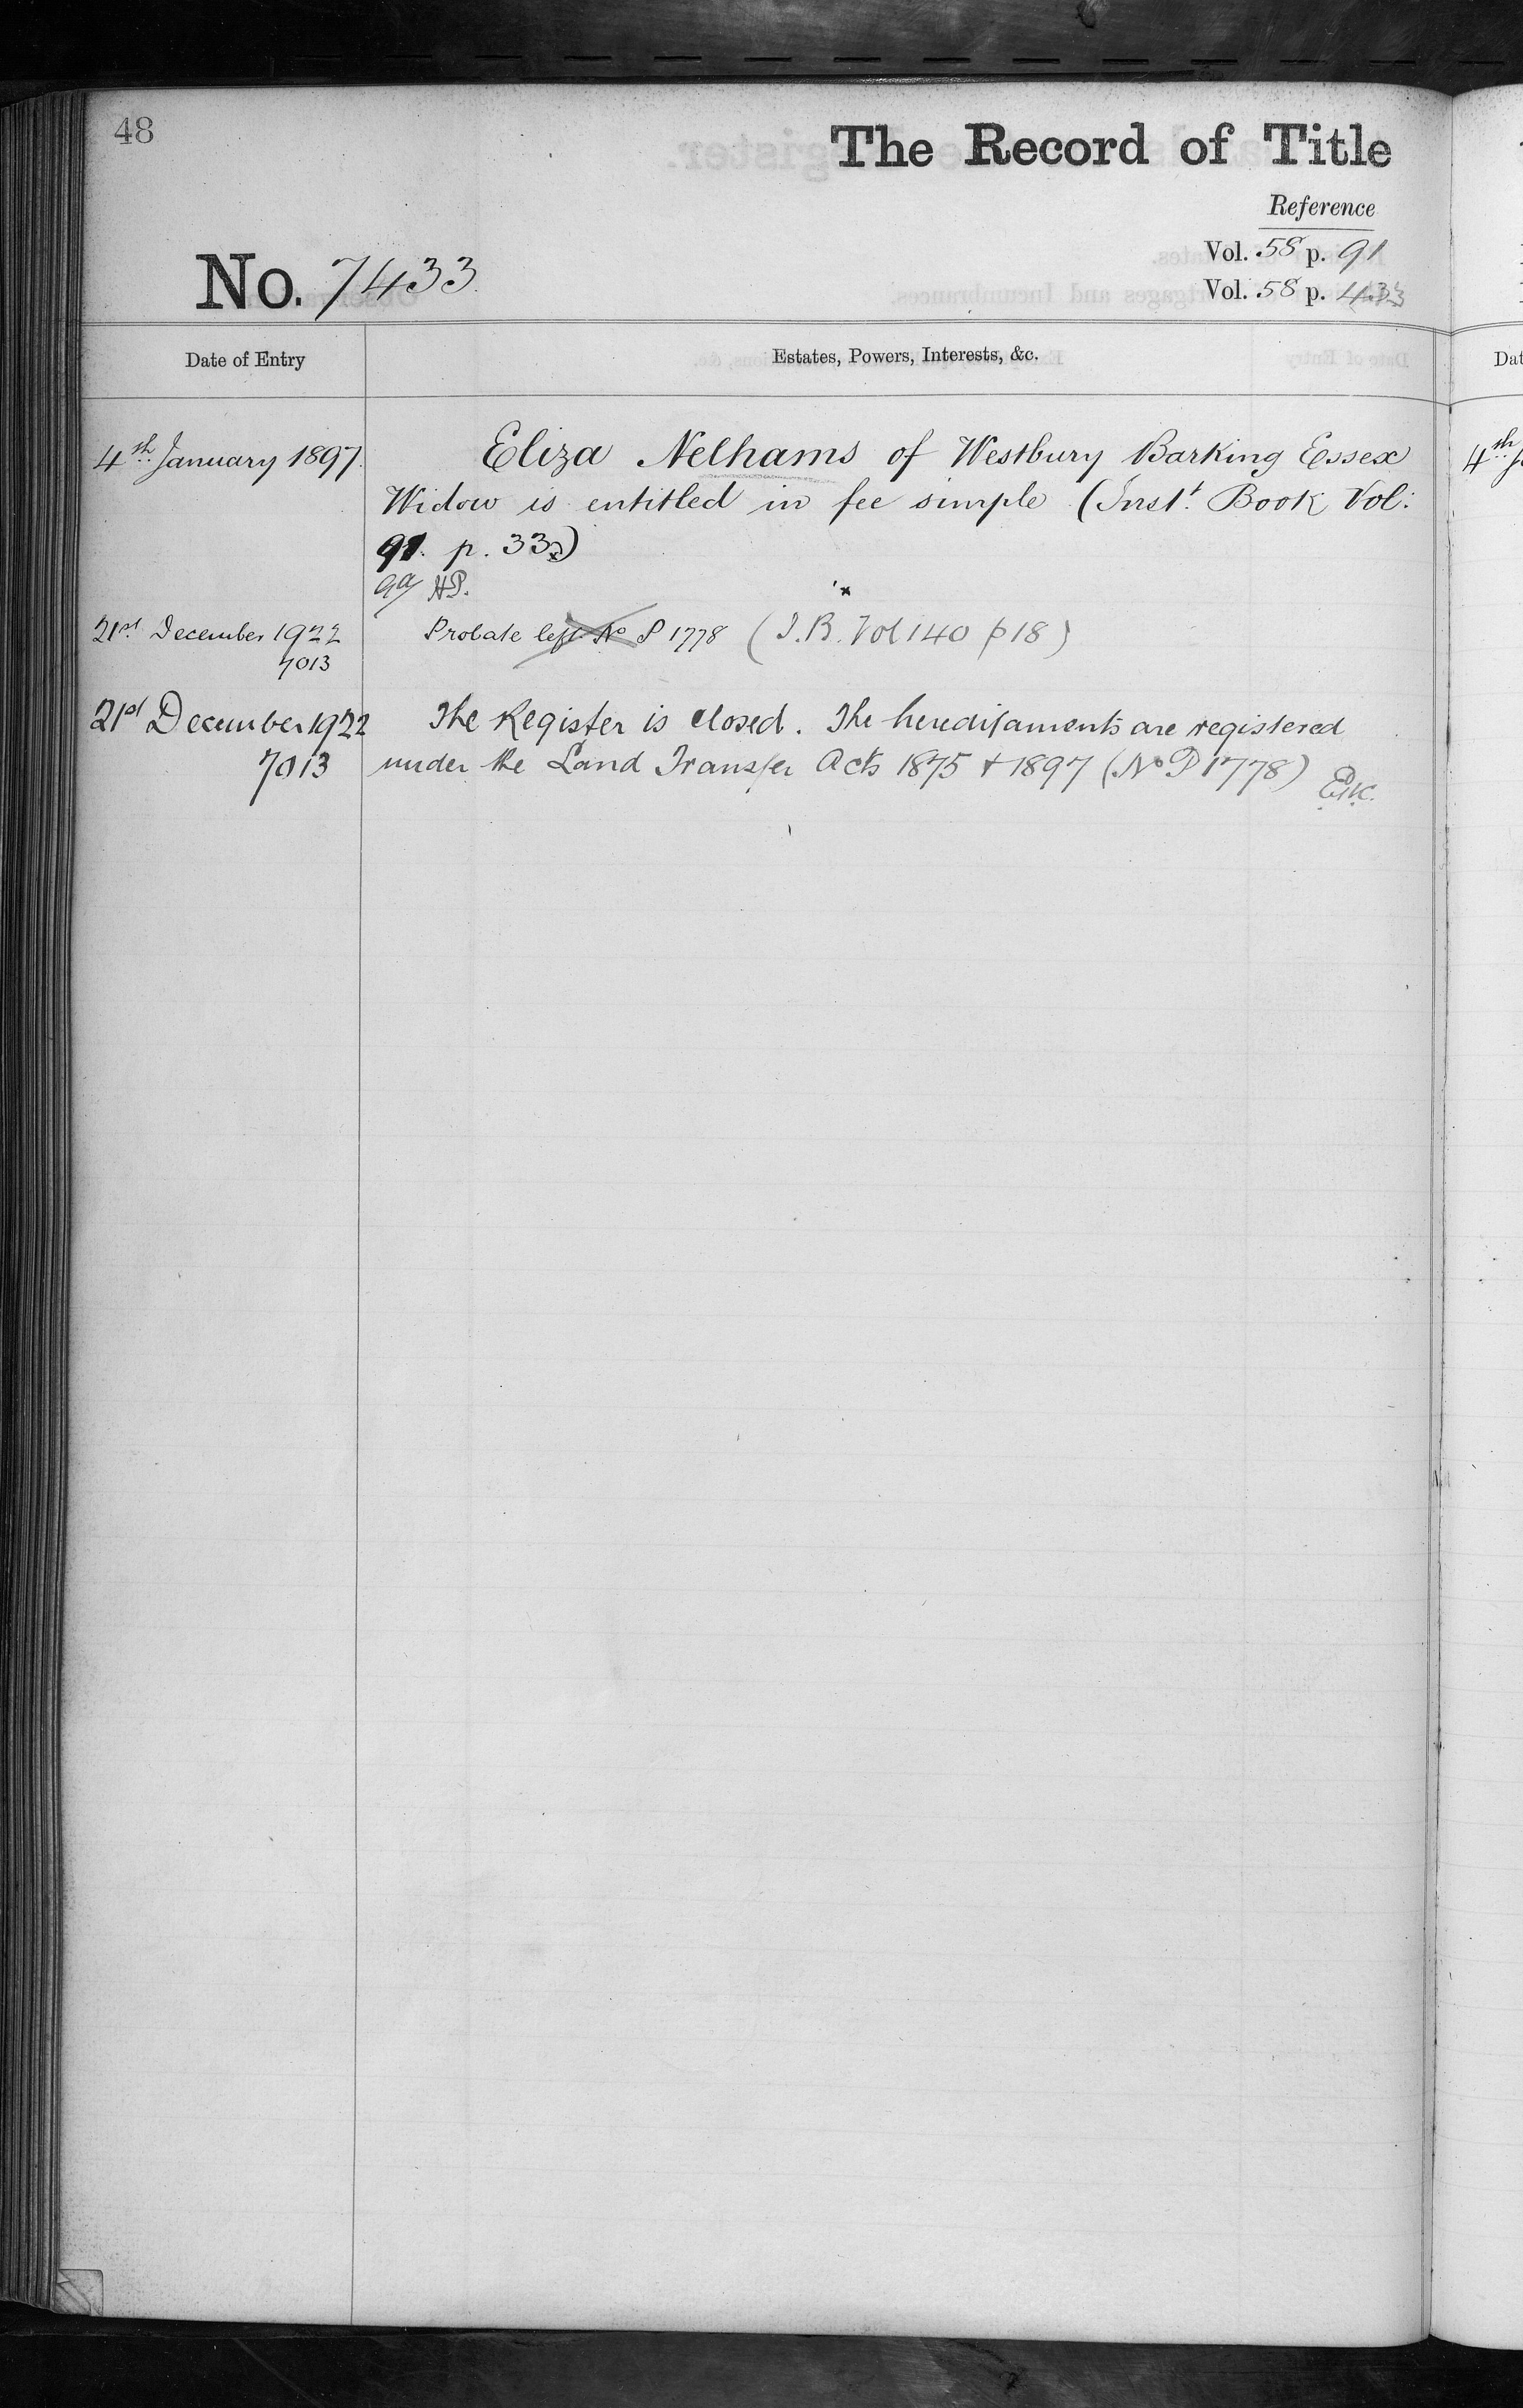 48
The Record of Title
Reference
Vol. 58 p. 91
No. 7433
Vol. 58 p. 433
Date of Entry
Estates, Powers, Interests, &c.
Dat
4th January 1897.
Eliza Nelhams of Westbury Barking Essex
Widow is entitled in fee simple (Inst. Book Vol:
91. p. 33)
4th
HP.
21st December 1922
Probate left No P 1778 (I.B. Vol 140 p 18)
7013
21st December 1922
The Register is closed. The hereditaments are registered
7013
under the Land Transfer Acts 1875 & 1897 (No P 1778)